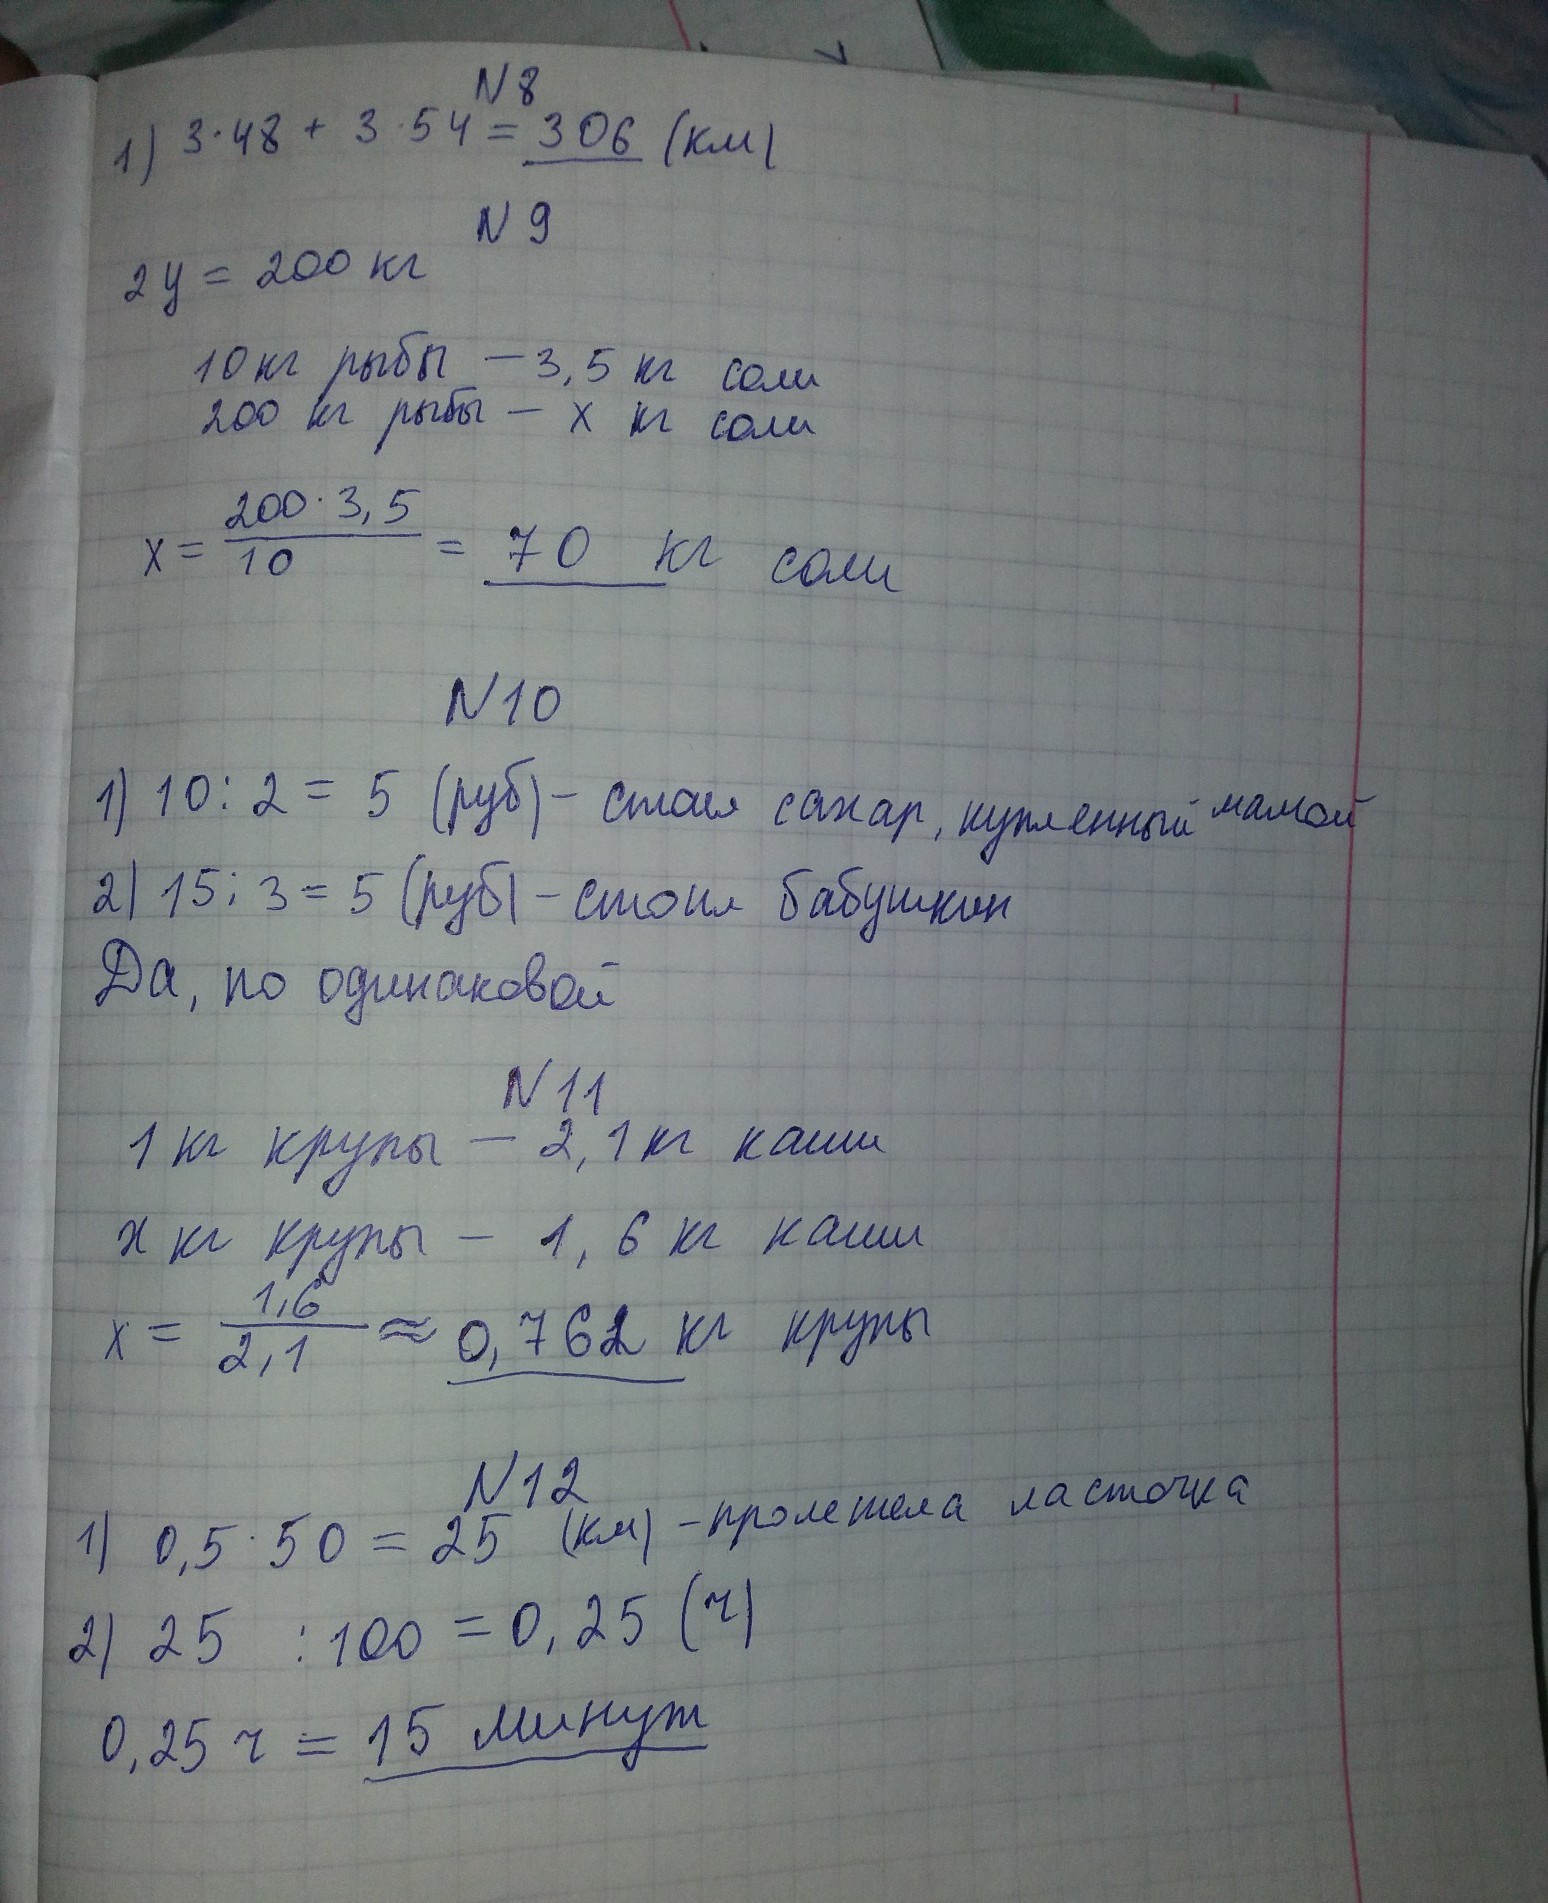 N8
1) 3·48 + 3·54 = 306 (км)
N9
2ц = 200 кг
10 кг рыбы – 3,5 кг соли
200 кг рыбы – х кг соли
х = 200·3,5 / 10 = 70 кг соли
N10
1) 10 : 2 = 5 (руб) – стоил сахар, купленный мамой
2) 15 : 3 = 5 (руб) – стоил бабушкин
Да, по одинаковой
N11
1 кг крупы – 2,1 кг каши
х кг крупы – 1,6 кг каши
х = 1,6 / 2,1 ≈ 0,762 кг крупы
N12
1) 0,5·50 = 25 (км) – пролетела ласточка
2) 25 : 100 = 0,25 (ч)
0,25 ч = 15 минут